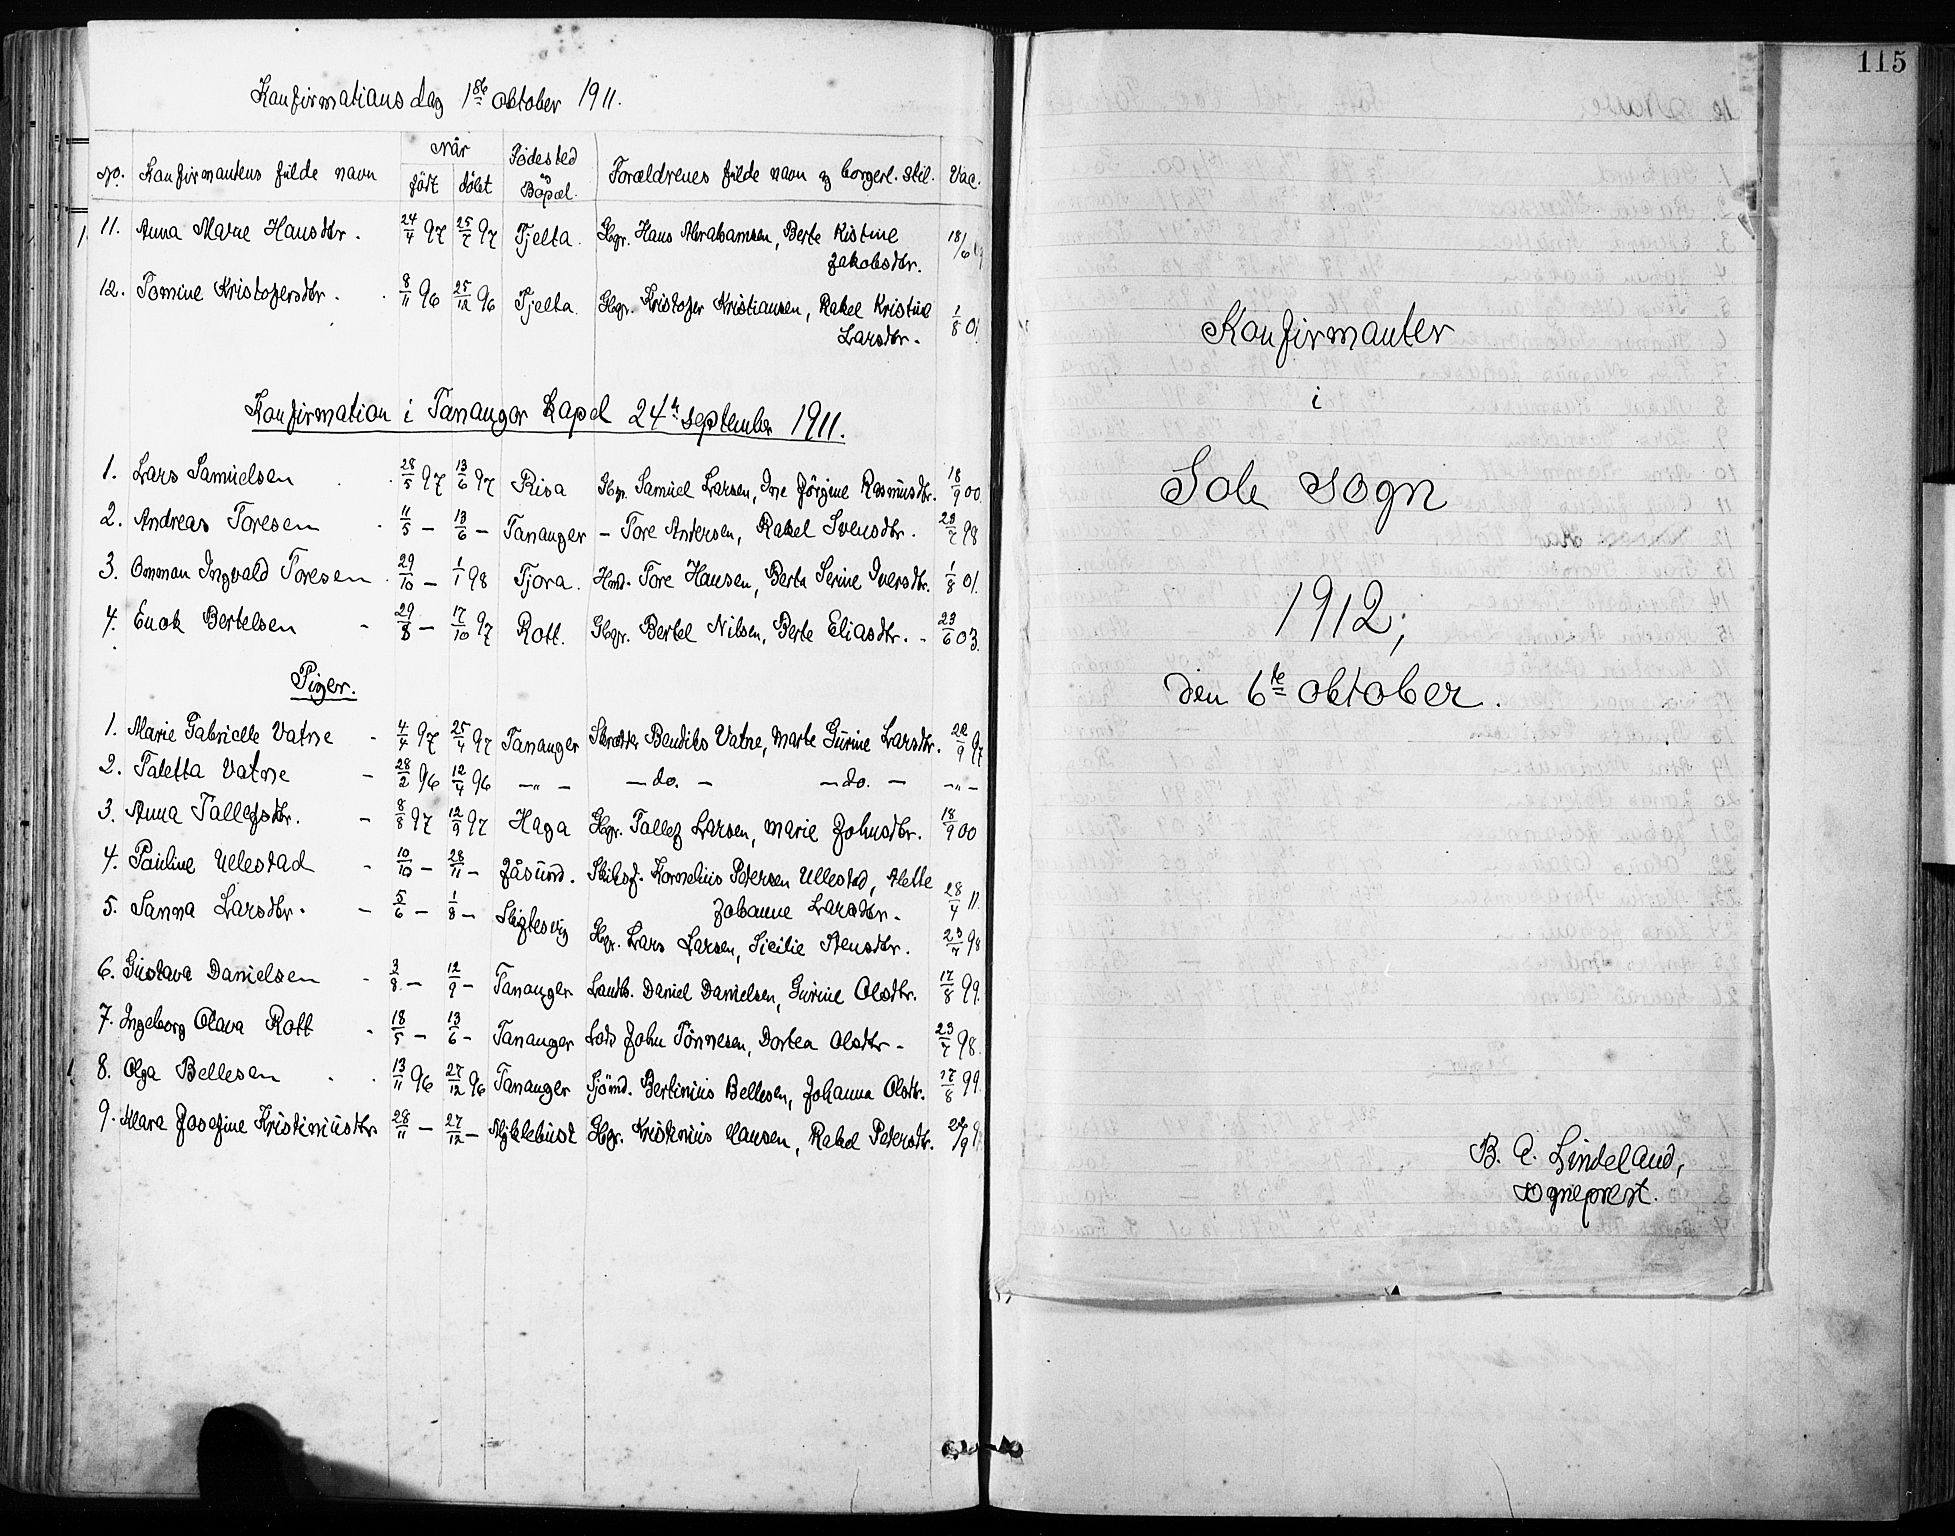 Konfirmationsdag 1ste oktober 1911.
No. Konfirmantens fulde navn når født døbt Fødested og Bopæl. Forældrenes fulde navn og borgerl. stil. Vac.
11. Anna Marie Hansdtr. 24/4 97 25/7 97 Tjelta. Gbr. Hans Abrahamsen, Berte Kistine Jakobsdtr. 18/6
12. Tomine Kristofersdtr. 8/11 96 25/12 96 Tjelta. Gbr. Kristofer Kristiansen, Rakel Kristine Larsdtr. 1/8 01.
Konfirmation i Tananger kapel 24de september 1911.
1. Lars Samuelsen 28/5 97 13/6 97 Risa Gbr. Samuel Larsen, Ine Jörgine Rasmusdtr. 18/9 00.
2. Andreas Toresen 11/5 — 13/6 — Tananger — Tore Andersen, Rakel Svensdtr. 23/7 98
3. Omman Ingvald Toresen 29/10 — 1/1 98 Tjora. Hmd. Tore Hansen, Berta Serine Iversdtr. 1/8 01.
4. Enok Bertelsen 29/8 — 17/10 97 Rott. Gbgr. Bertel Nilsen, Berte Eliasdtr. — 23/6 03.
Piger.
1. Marie Gabrielle Vatne 4/4 97 25/4 97 Tananger Skrædder Bendiks Vatne, Marte Gurine Larsdtr. 22/9 97
2. Taletta Vatne — 28/2 96 12/4 96 — " — — do. — — do. — — " —
3. Anna Tallefsdtr. — 8/8 97 12/9 97 Haga Gbgr. Tallef Larsen, Marie Johnsdtr. 18/9 00
4. Pauline Ullestad 10/10 — 28/11 — Jåsund. Skibsf. Kornelius Petersen Ullestad, Alette Johanne Larsdtr. 28/4 11.
5. Sanna Larsdtr. — 5/6 — 1/8 — Sligtesvig Gbgr. Lars Larsen, Sicilie Stensdtr. 23/7 98
6. Gustava Danielsen 3/8 — 12/9 — Tananger Landh. Daniel Danielsen, Gurine Olsdtr. 17/8 99.
7. Ingeborg Olava Rott 18/5 — 13/6 — Tananger Lods John Tönnesen, Dortea Olsdtr — 23/7 98.
8. Olga Bellesen 13/11 96 27/12 96 Tananger Sjömd. Bertinius Bellesen, Johanna Olsdtr. 17/8 99.
9. Klara Josefine Kristiniusdtr 28/11 — 27/12 — Myklebust Gbgr. Kristinius Hansen, Rakel Petersdtr. 22/9
115
Konfirmanter
i
Sole sogn
1912;
den 6te oktober.
B. A. Lindeland,
sogneprest.